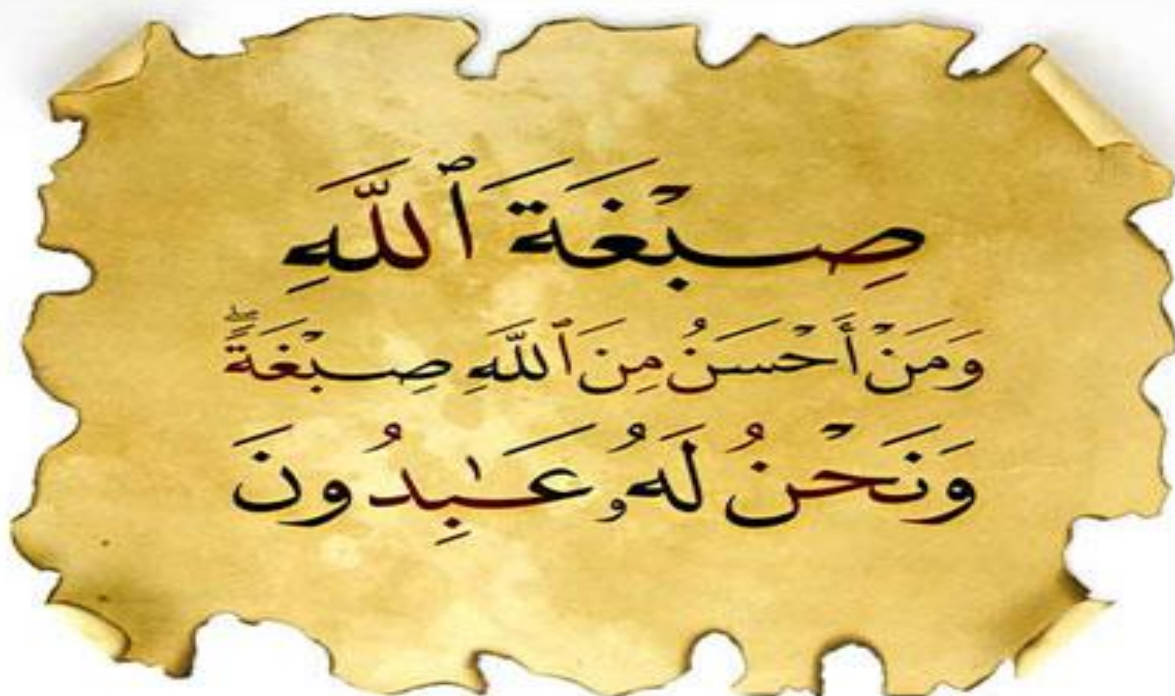 صِبْغَةَ ٱللَّهِ
وَمَنْ أَحْسَنُ مِنَ ٱللَّهِ صِبْغَةًۖ
وَنَحْنُ لَهُۥ عَٰبِدُونَ